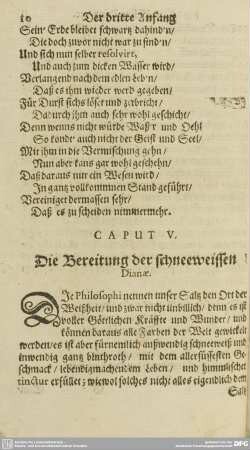 10 Der dritte Anfang
Sein' Erde bleibet schwartz dahind'n/
Die doch zuvor nicht war zu find'n/
Und sich nun selber resolvirt,
Und auch zum dicken Wasser wird/
Verlangend nach dem edlen Leb'n/
Daß es ihm wieder werd gegeben/
Für Durst sichs löset und zerbricht/
Dadurch ihm auch sehr wohl geschicht/
Denn wenns nicht würde Waß'r und Oehl
So kondt' auch nicht der Geist und Seel/
Mit ihm in die Vermischung gehn/
Nun aber kans gar wohl geschehn/
Daß daraus nur ein Wesen wird/
In gantz vollkommnen Stand geführt/
Vereiniget dermassen sehr/
Daß es zu scheiden nimmermehr.
CAPUT V.
Die Bereitung der schneeweissen
Dianæ.
DIe Philosophi nennen unser Saltz den Ort der
Weißheit/ und zwar nicht unbillich/ denn es ist
voller Göttlichen Kräffte und Wunder/ und
können daraus alle Farben der Welt gewickelt
werden/ es ist aber fürnemlich außwendig schneeweiß und
inwendig gantz blutroth/ mit dem allersüssesten Ge-
schmack/ lebendigmachendem Leben/ und himmlischer
tinctur erfüllet; wiewol solches nicht alles eigendlich dem
Saltz